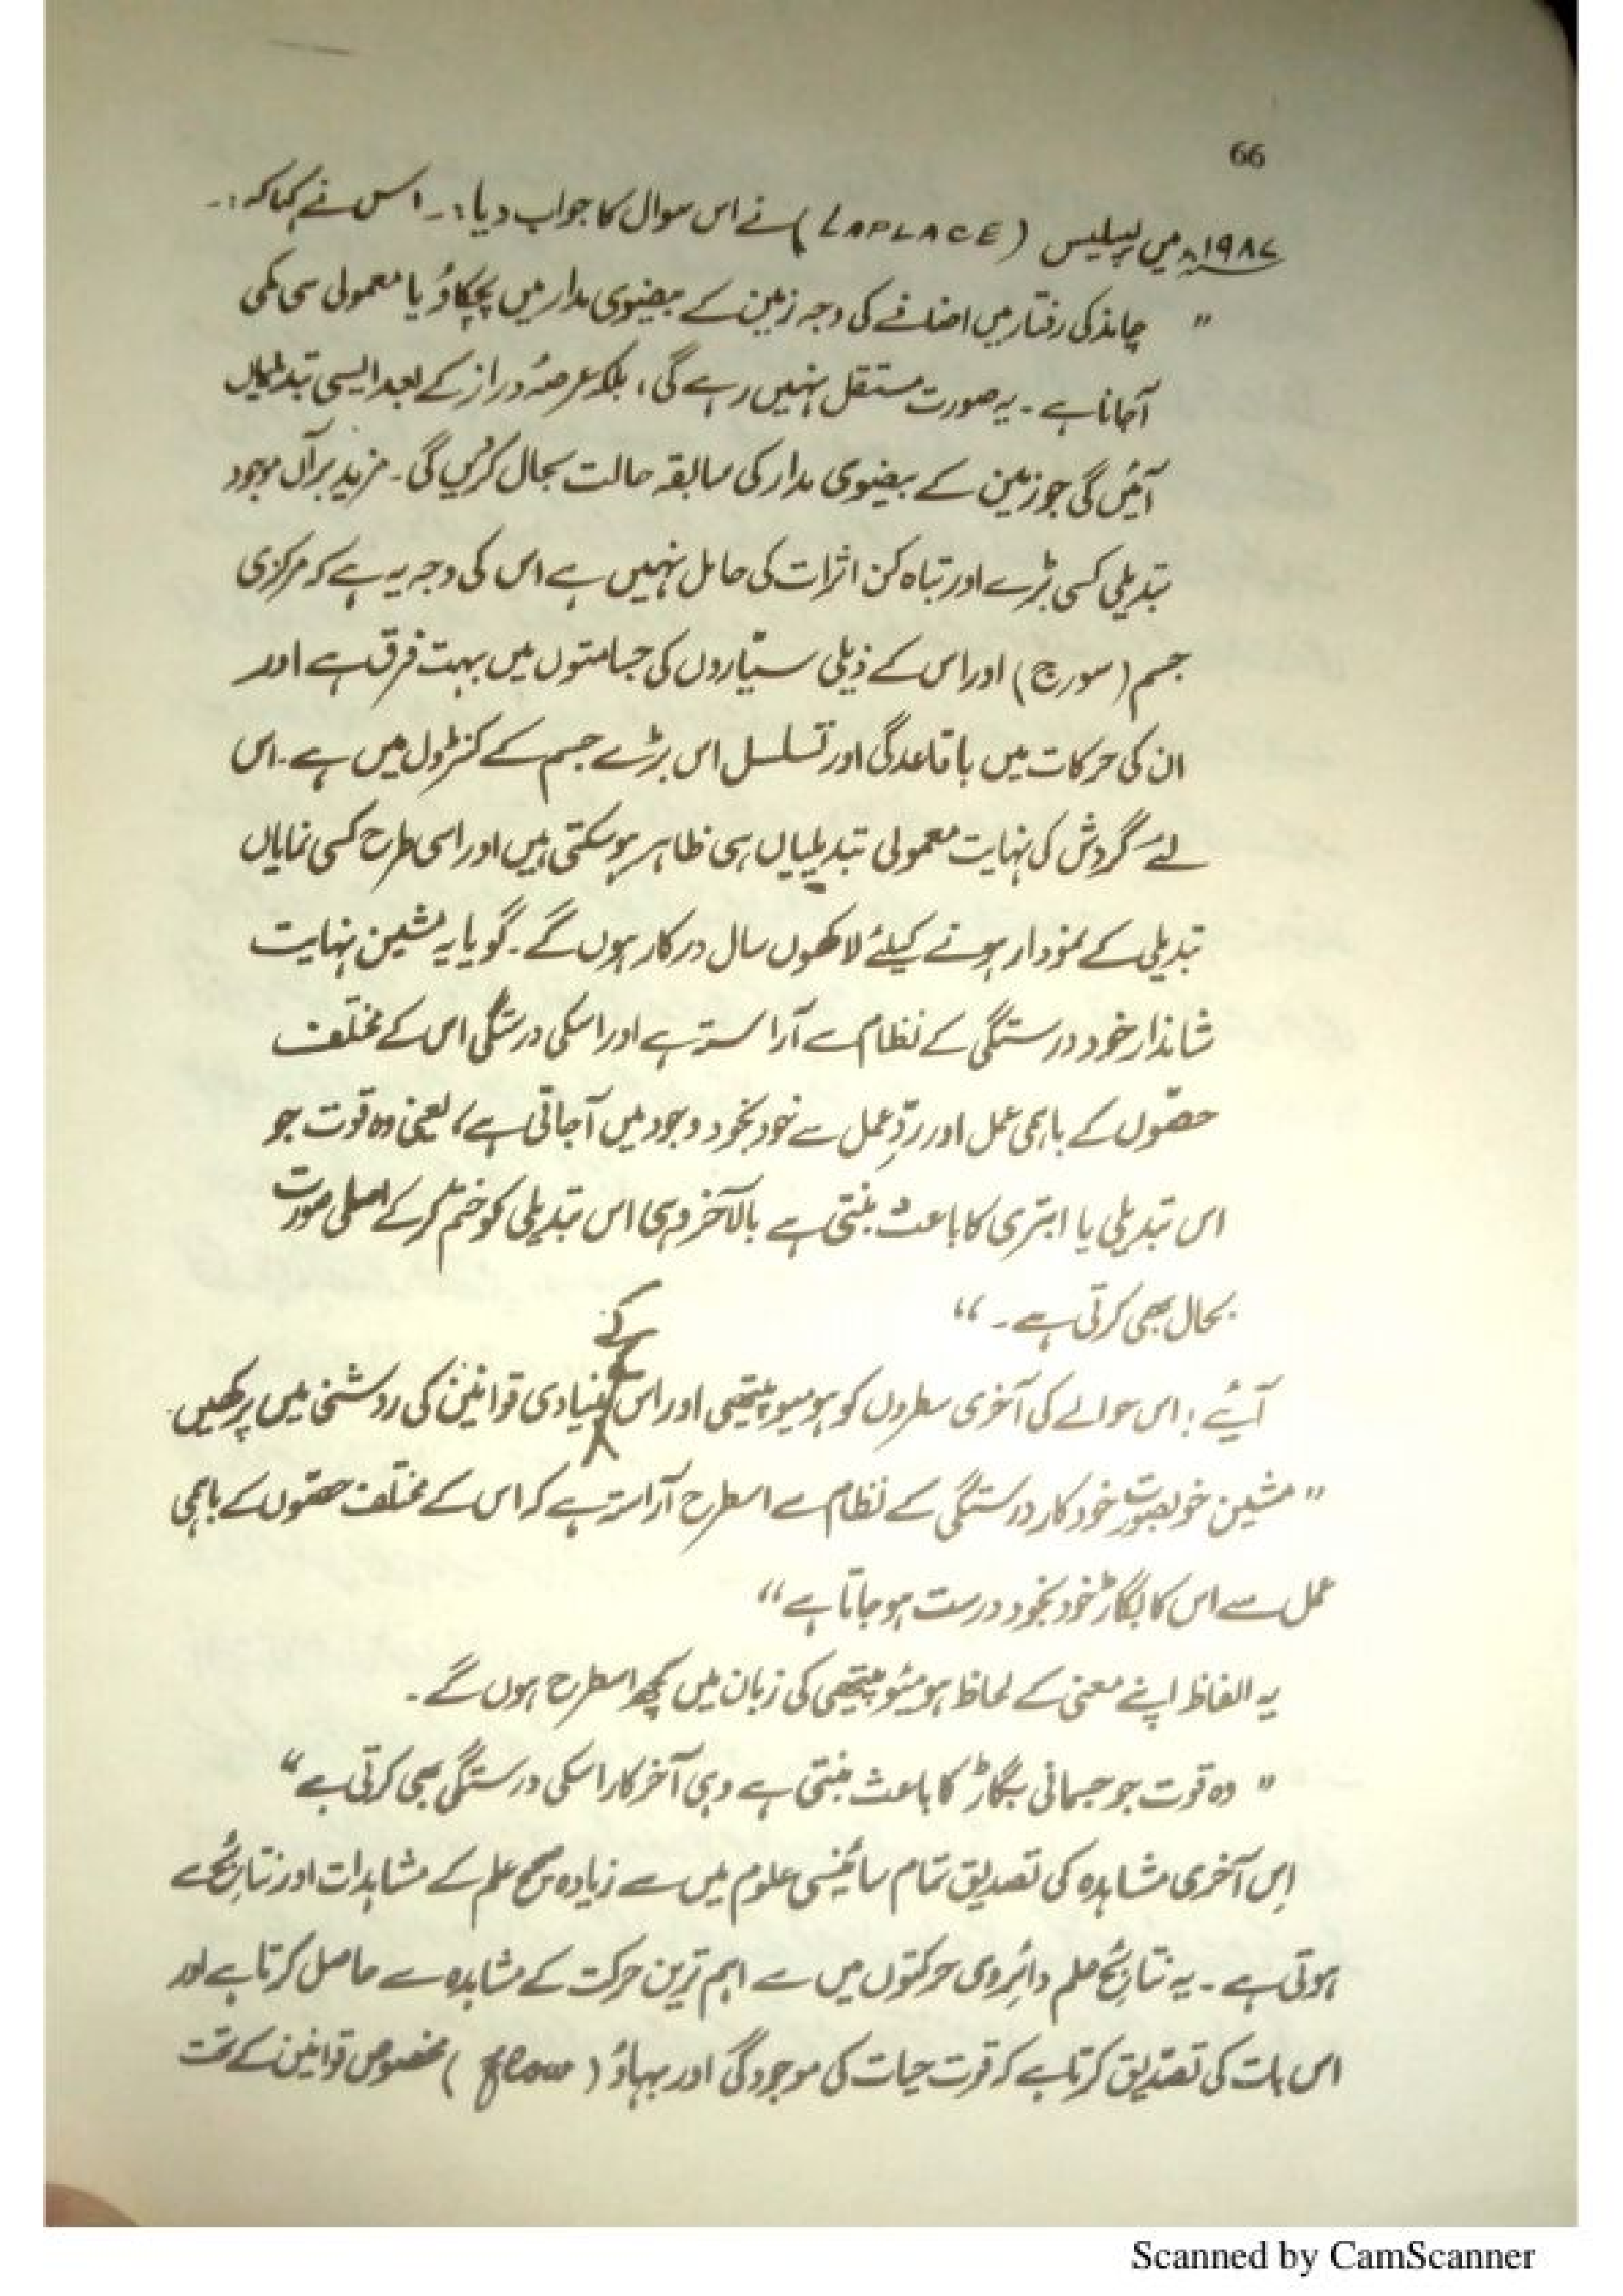 66
۱۹۸۷ء میں لیپلیس (LAPLACE) نے اس سوال کا جواب دیا:۔ اس نے کہا کہ:۔
" چاند کی رفتار میں اضافے کی وجہ زمین کے بیضوی مدار میں پچکاؤ یا معمولی سی کمی
آجانا ہے ۔ یہ صورت مستقل نہیں رہے گی، بلکہ عرصۂ دراز کے بعد ایسی تبدیلیاں
آئیں گی جو زمین کے بیضوی مدار کی سابقہ حالت بحال کریں گی ۔ مزید برآں موجود
تبدیلی کسی بڑے اور تباہ کن اثرات کی حامل نہیں ہے اس کی وجہ یہ ہے کہ مرکزی
جسم (سورج) اور اس کے ذیلی سیّاروں کی جسامتوں میں بہت فرق ہے اور
ان کی حرکات میں باقاعدگی اور تسلسل اس بڑے جسم کے کنٹرول میں ہے ۔ اس
لئے گردش کی نہایت معمولی تبدیلیاں ہی ظاہر ہو سکتی ہیں اور اسی طرح کسی نمایاں
تبدیلی کے نمودار ہونے کیلئے لاکھوں سال درکار ہوں گے ۔ گویا یہ مشین نہایت
شاندار خود درستگی کے نظام سے آراستہ ہے اور اسکی درستگی اس کے مختلف
حصّوں کے باہمی عمل اور ردِّ عمل سے خود بخود وجود میں آجاتی ہے، یعنی وہ قوت جو
اس تبدیلی یا ابتری کا باعث بنتی ہے بالآخر وہی اس تبدیلی کو ختم کر کے اصلی صورت
بحال بھی کرتی ہے ۔ "
آیئے! اس حوالے کی آخری سطروں کو ہومیوپیتھی اور اس کے بنیادی قوانین کی روشنی میں پرکھیں۔
" مشین خوبصورت خودکار درستگی کے نظام سے اسطرح آراستہ ہے کہ اس کے مختلف حصّوں کے باہمی
عمل سے اس کا بگاڑ خود بخود درست ہو جاتا ہے "
یہ الفاظ اپنے معنی کے لحاظ ہومیئوپیتھی کی زبان میں کچھ اسطرح ہوں گے ۔
" وہ قوت جو جسمانی بگاڑ کا باعث بنتی ہے وہی آخر کار اسکی درستگی بھی کرتی ہے "
اِس آخری مشاہدہ کی تصدیق تمام سائینسی علوم میں سے زیادہ صحیح علم کے مشاہدات اور نتائج سے
ہوتی ہے ۔ یہ نتائج علم دائروی حرکتوں میں سے اہم ترین حرکت کے مشاہدہ سے حاصل کرتا ہے اور
اس بات کی تصدیق کرتا ہے کہ قوت حیات کی موجودگی اور بہاؤ (flow) مخصوص قوانین کے تحت
Scanned by CamScanner